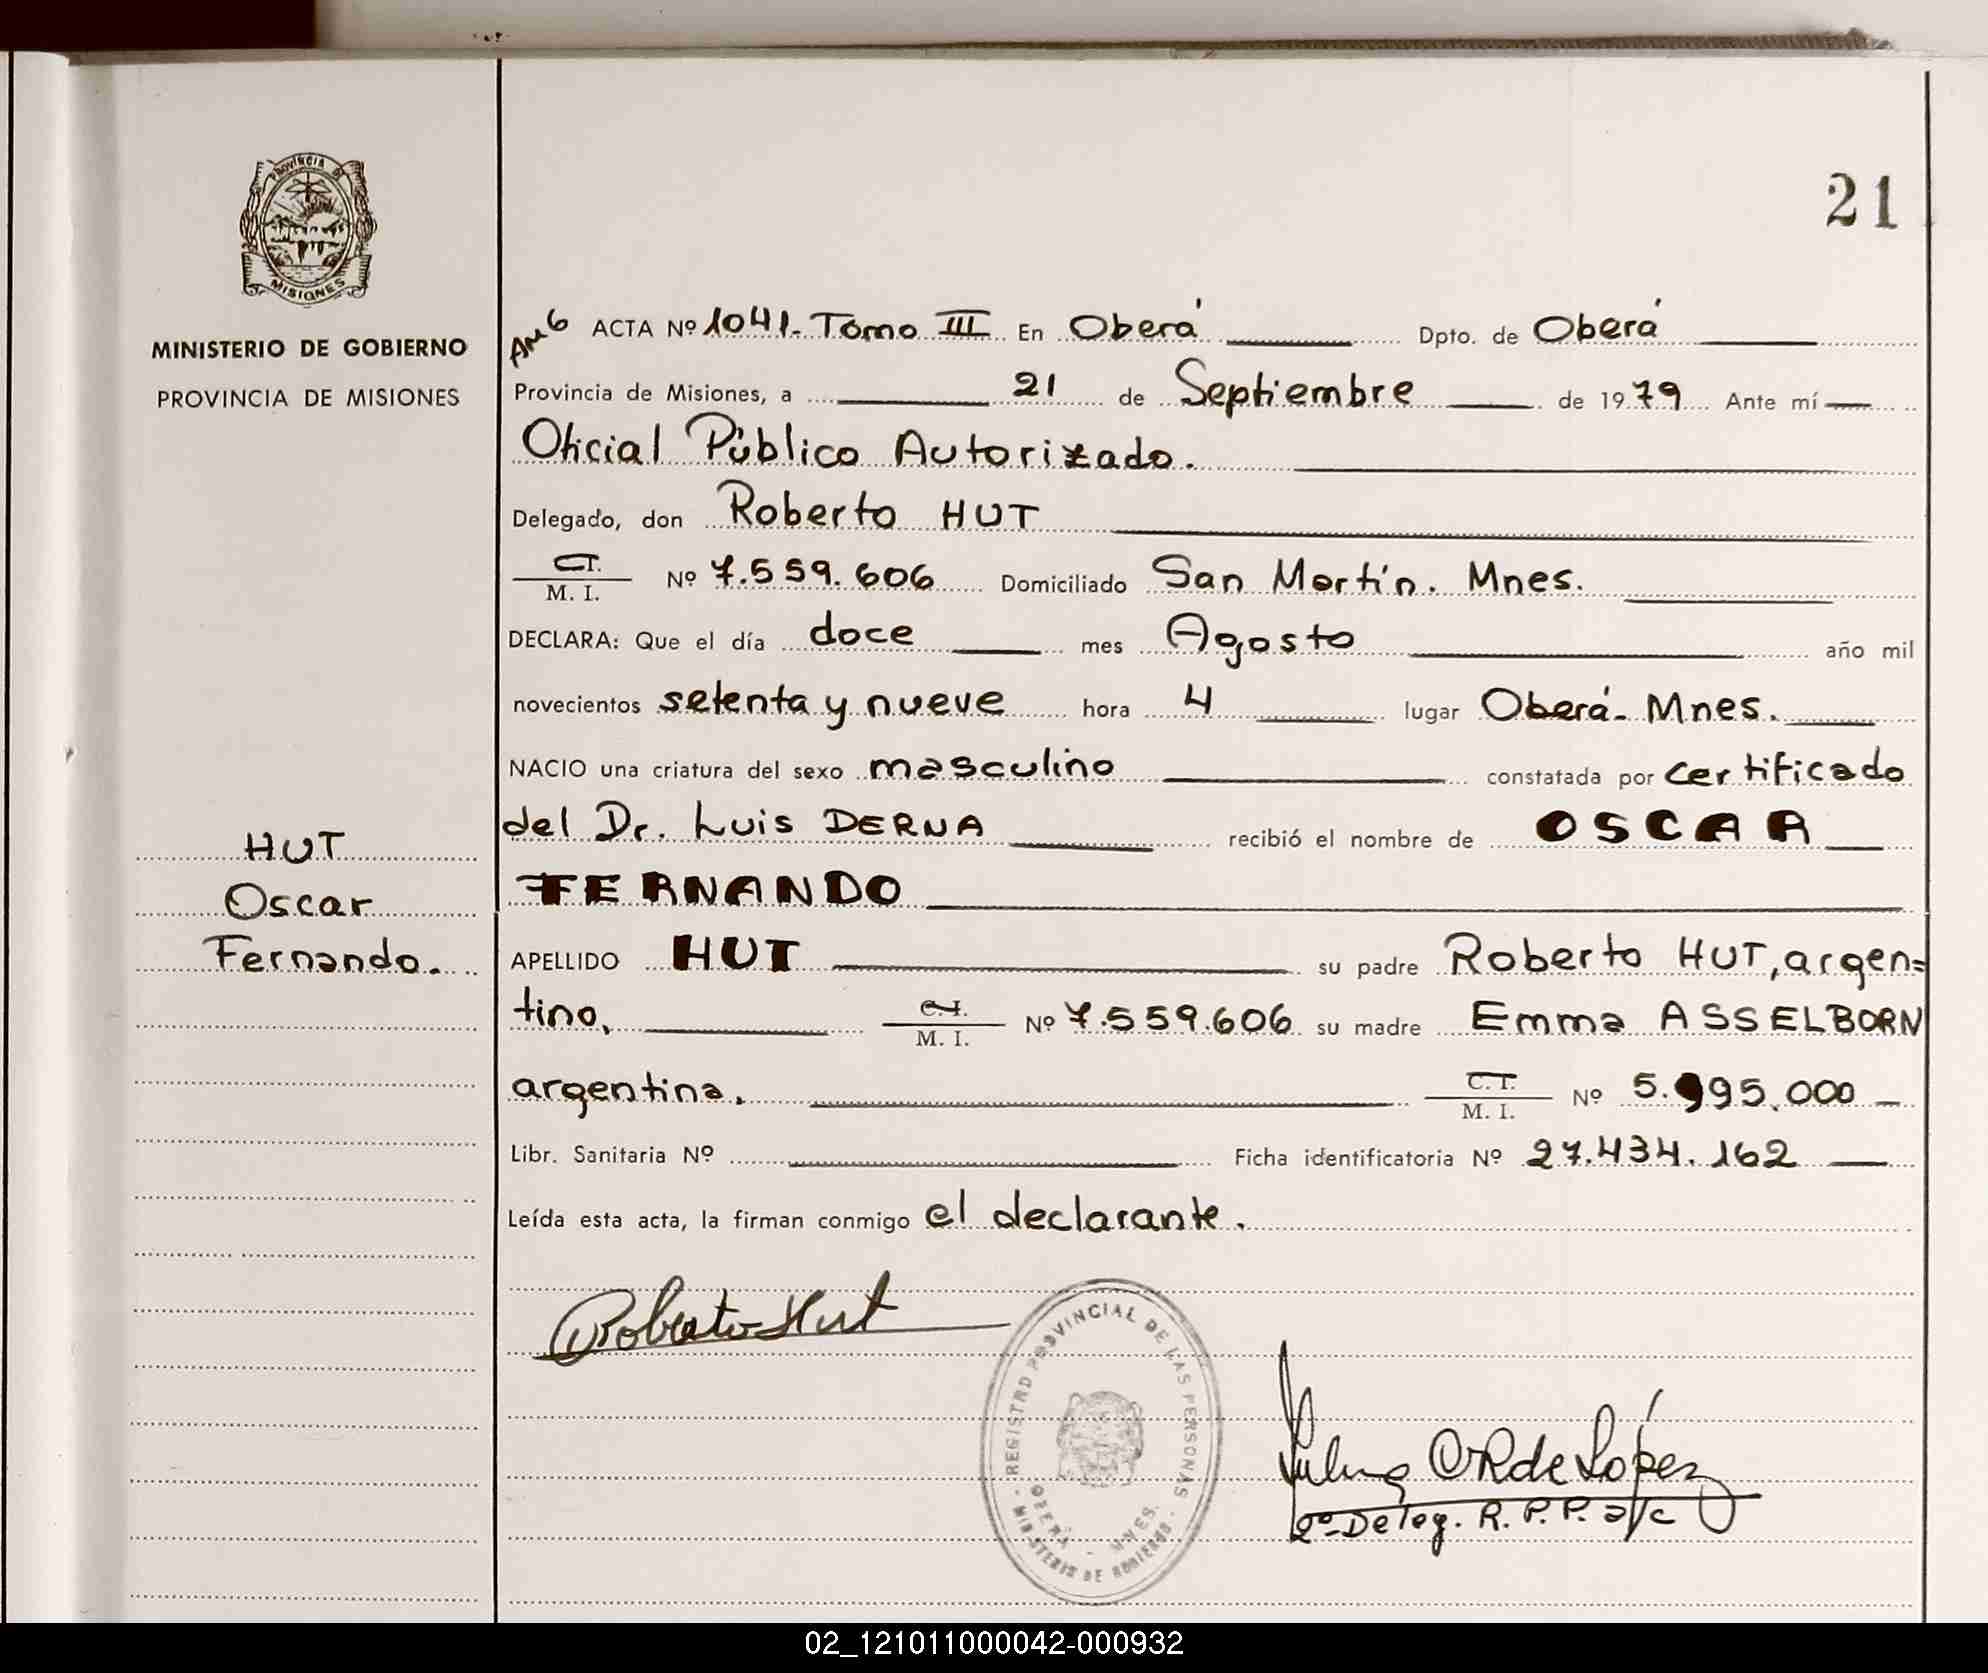 21
PROVINCIA DE
MISIONES
MINISTERIO DE GOBIERNO
PROVINCIA DE MISIONES
HUT
Oscar
Fernando.
ACTA Nº 1041. Tomo III En Oberá Dpto. de Oberá
Provincia de Misiones, a 21 de Septiembre de 1979 Ante mí
Oficial Público Autorizado.
Delegado, don Roberto HUT
C.I.
M. I. Nº 7.559.606 Domiciliado San Martín. Mnes.
DECLARA: Que el día doce mes Agosto año mil
novecientos setenta y nueve hora 4 lugar Oberá. Mnes.
NACIO una criatura del sexo masculino constatada por certificado
del Dr. Luis DERNA recibió el nombre de OSCAR
FERNANDO
APELLIDO HUT su padre Roberto HUT, argen=
tino, C.I. M. I. Nº 7.559.606 su madre Emma ASSELBORN
argentina. C.I. M. I. Nº 5.995.000
Libr. Sanitaria Nº Ficha identificatoria Nº 27.434.162
Leída esta acta, la firman conmigo el declarante.
Roberto Hut
REGISTRO PROVINCIAL DE LAS PERSONAS
OBERÁ - MNES.
MINISTERIO DE GOBIERNO
de López
2º Deleg. R. P. P. a/c
02_121011000042-000932